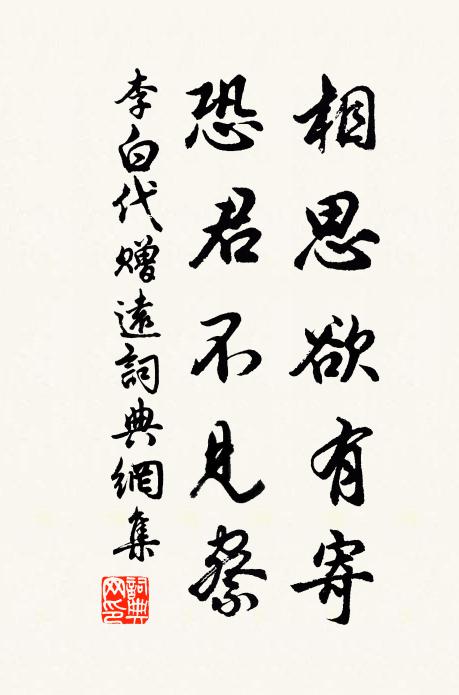 相思欲有寄
恐君不見察
李白代贈遠詞典網集
詞典網印